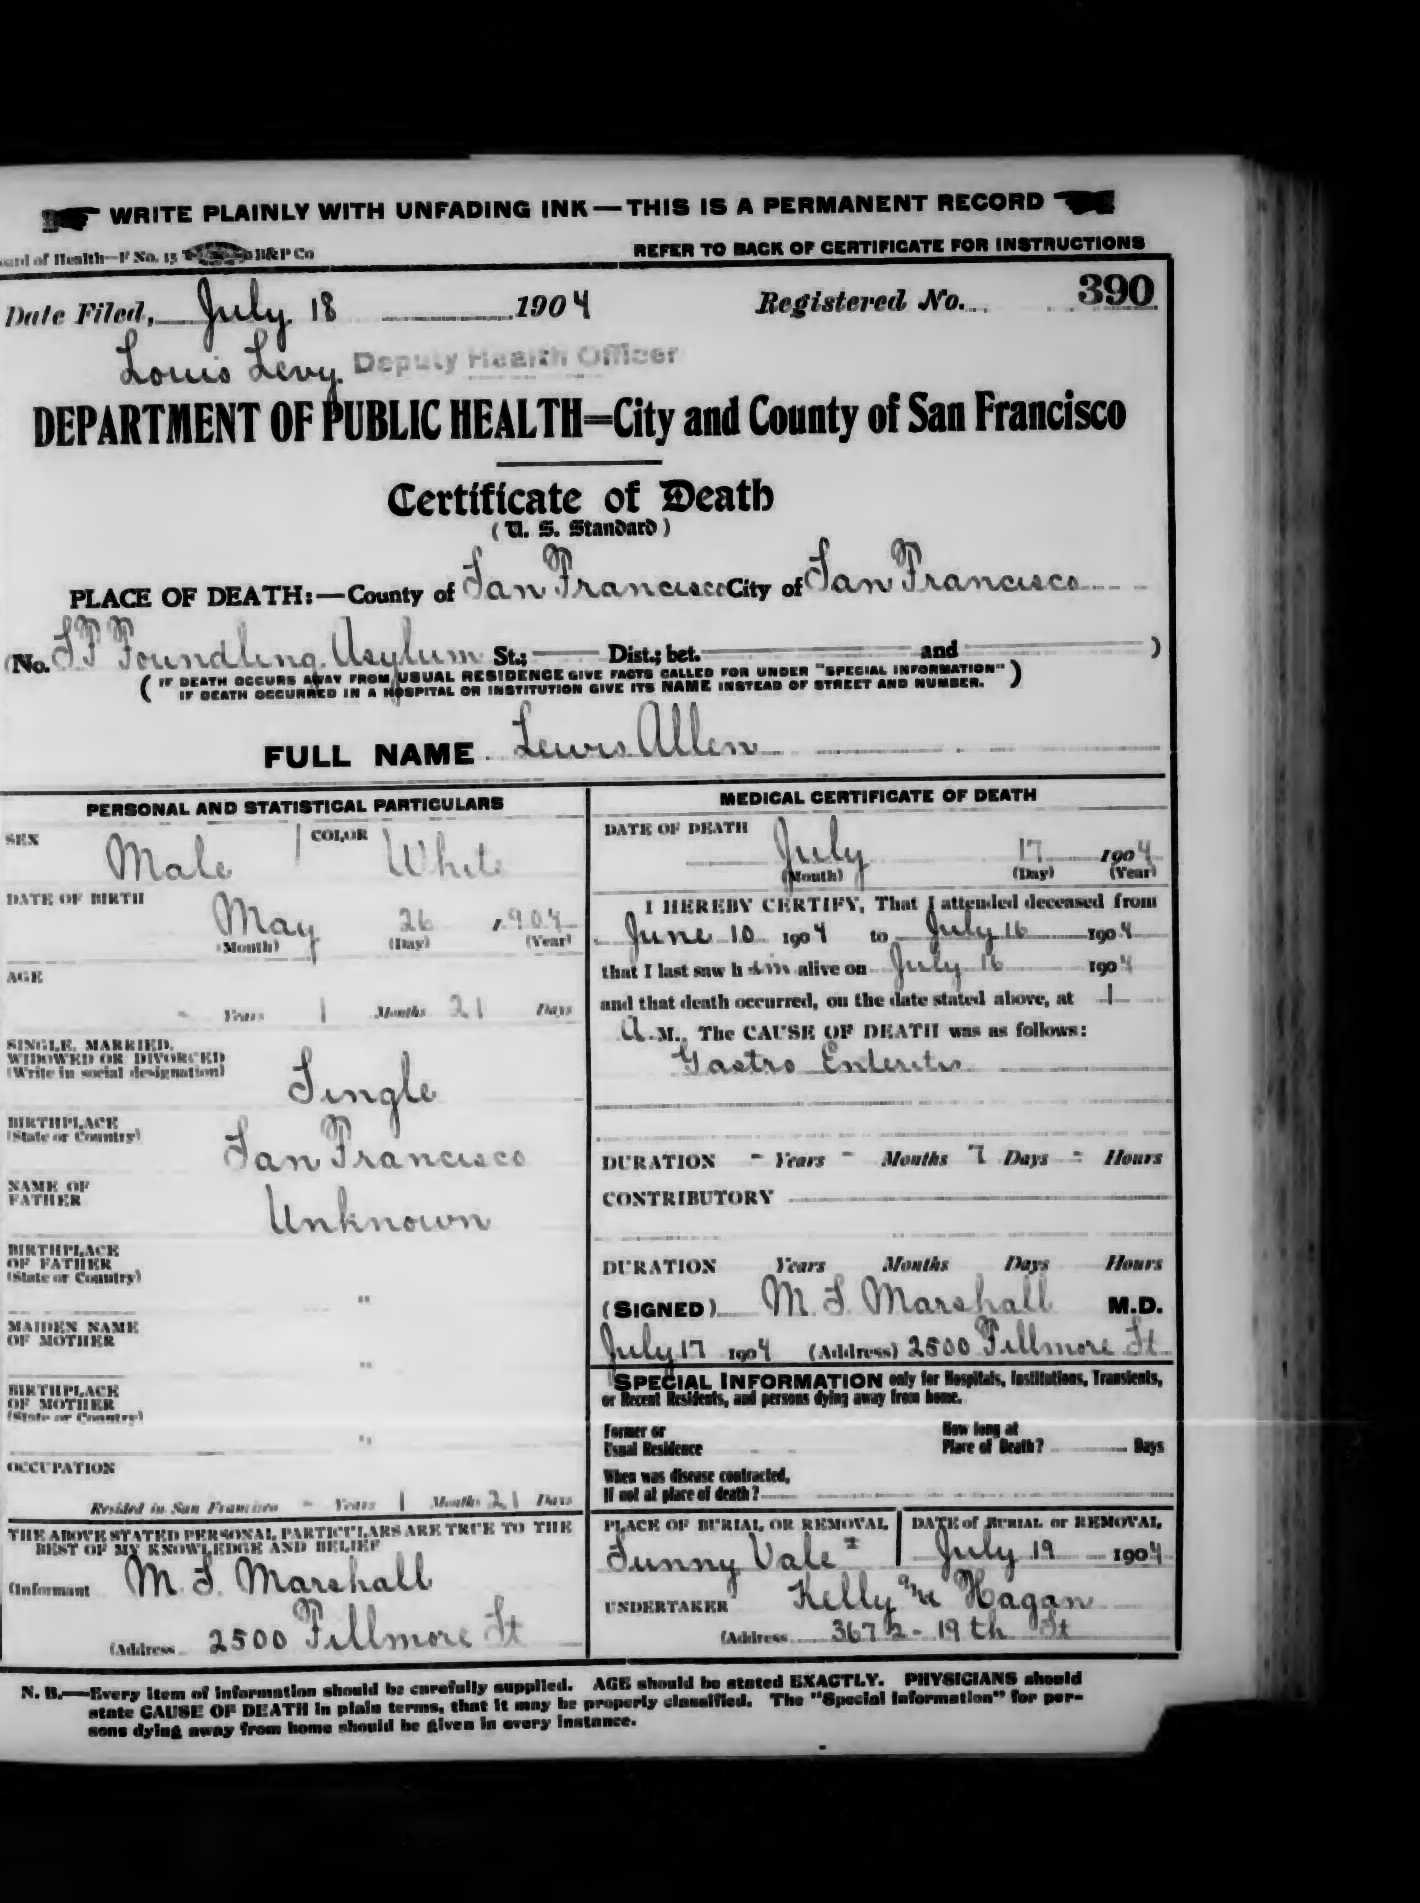 WRITE PLAINLY WITH UNFADING INK—THIS IS A PERMANENT RECORD
oard of Health—F No. 15 B&P Co REFER TO BACK OF CERTIFICATE FOR INSTRUCTIONS
Date Filed, July 18 1904 Registered No. 390
Louis Levy. Deputy Health Officer
DEPARTMENT OF PUBLIC HEALTH=City and County of San Francisco
Certificate of Death
(U. S. Standard)
PLACE OF DEATH:—County of San Francisco City of San Francisco
(No. SF Foundling Asylum St.; Dist.; bet. and )
(IF DEATH OCCURS AWAY FROM USUAL RESIDENCE GIVE FACTS CALLED FOR UNDER "SPECIAL INFORMATION")
(IF DEATH OCCURRED IN A HOSPITAL OR INSTITUTION GIVE ITS NAME INSTEAD OF STREET AND NUMBER.)
FULL NAME Lewis Allen
PERSONAL AND STATISTICAL PARTICULARS
SEX Male COLOR White
DATE OF BIRTH
May 26 , 904
(Month) (Day) (Year)
AGE
- Years 1 Months 21 Days
SINGLE, MARRIED,
WIDOWED OR DIVORCED
(Write in social designation)
Single
BIRTHPLACE
(State or Country)
San Francisco
NAME OF
FATHER
Unknown
BIRTHPLACE
OF FATHER
(State or Country)
"
MAIDEN NAME
OF MOTHER
"
BIRTHPLACE
OF MOTHER
(State or Country)
"
OCCUPATION
Resided in San Francisco - Years 1 Months 21 Days
THE ABOVE STATED PERSONAL PARTICULARS ARE TRUE TO THE
BEST OF MY KNOWLEDGE AND BELIEF
(Informant M. S. Marshall
(Address 2500 Fillmore St
MEDICAL CERTIFICATE OF DEATH
DATE OF DEATH
July 17 1904
(Month) (Day) (Year)
I HEREBY CERTIFY, That I attended deceased from
June 10 1904 to July 16 1904
that I last saw him alive on July 16 1904
and that death occurred, on the date stated above, at 1
A. M. The CAUSE OF DEATH was as follows:
Gastro Enteritis
DURATION - Years - Months 7 Days - Hours
CONTRIBUTORY
DURATION Years Months Days Hours
(SIGNED) M. S. Marshall M.D.
July 17 1904 (Address) 2500 Fillmore St
SPECIAL INFORMATION only for Hospitals, Institutions, Transients,
or Recent Residents, and persons dying away from home.
Former or
Usual Residence
How long at
Place of Death? Days
When was disease contracted,
If not at place of death?
PLACE OF BURIAL OR REMOVAL
Sunny Vale
DATE of BURIAL or REMOVAL
July 19 1904
UNDERTAKER Kelly Hagan
(Address 19th St
N. B.—Every item of information should be carefully supplied. AGE should be stated EXACTLY. PHYSICIANS should
state CAUSE OF DEATH in plain terms, that it may be properly classified. The "Special Information" for per-
sons dying away from home should be given in every instance.